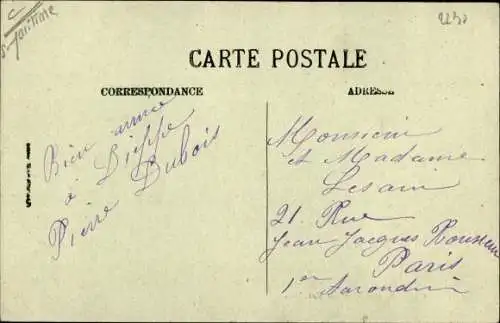 C
S. Maritime
CARTE POSTALE
CORRESPONDANCE
ADRESSE
Bien arrivé
à Dieppe
Pierre Dubois
Monsieur
et Madame
Lesain
21 Rue
Jean Jacques Rousseau
Paris
1er Arrondi